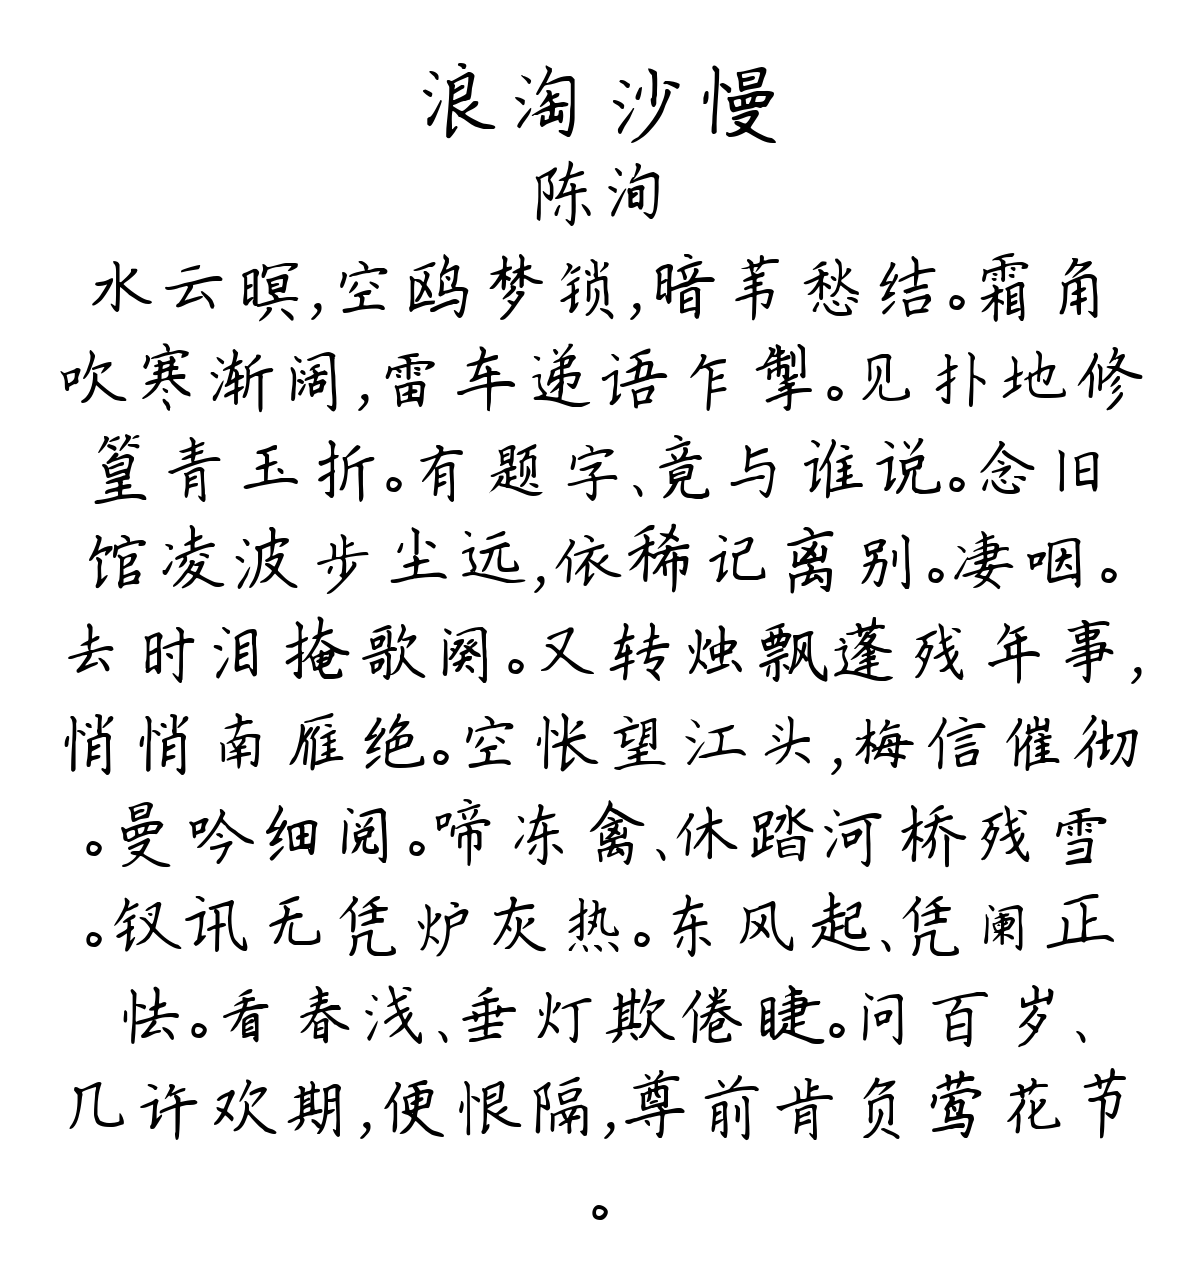 浪淘沙慢
陈洵
水云暝,空鸥梦锁,暗苇愁结。霜角
吹寒渐阔,雷车递语乍掣。见扑地修
篁青玉折。有题字、竟与谁说。念旧
馆凌波步尘远,依稀记离别。凄咽。
去时泪掩歌阕。又转烛飘蓬残年事,
悄悄南雁绝。空怅望江头,梅信催彻
。曼吟细阅。啼冻禽、休踏河桥残雪
。钗讯无凭炉灰热。东风起、凭阑正
怯。看春浅、垂灯欺倦睫。问百岁、
几许欢期,便恨隔,尊前肯负莺花节
。